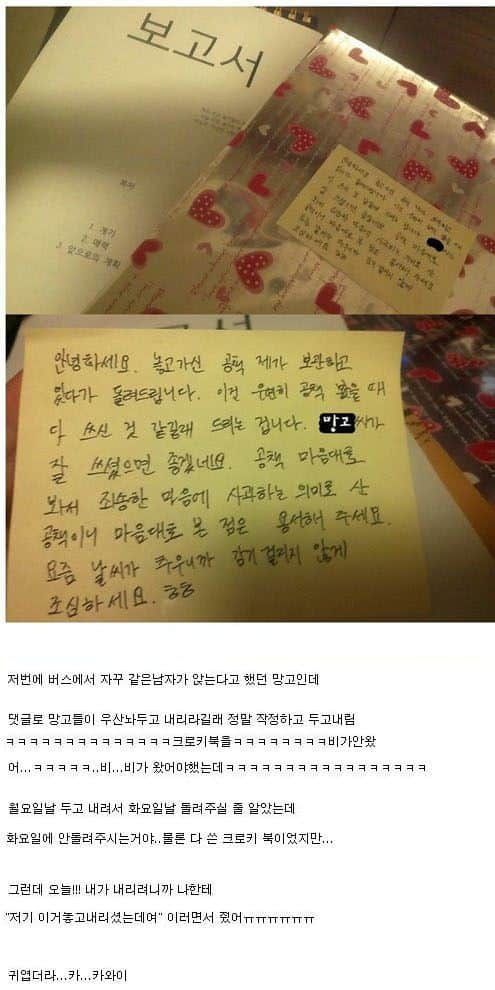 보고서
목차
1. 계기
2. 매력
3. 앞으로의 계획
안녕하세요. 놓고가신 공책 제가 보관하고
있다가 돌려드립니다. 이건 우연히 공책 봤을 때
다 쓰신 것 같길래 드리는 겁니다. 망고씨가
잘 쓰셨으면 좋겠네요. 공책 마음대로
봐서 죄송한 마음에 사과하는 의미로 산
공책이니 마음대로 본 점은 용서해 주세요.
요즘 날씨가 추우니까 감기 걸리지 않게
조심하세요. ㅎㅎ
저번에 버스에서 자꾸 같은남자가 앉는다고 했던 망고인데
댓글로 망고들이 우산놔두고 내리라길래 정말 작정하고 두고내림
ㅋㅋㅋㅋㅋㅋㅋㅋㅋㅋㅋㅋㅋㅋ크로키북을ㅋㅋㅋㅋㅋㅋㅋㅋ비가안왔
어...ㅋㅋㅋㅋㅋ..비...비가 왔어야했는데ㅋㅋㅋㅋㅋㅋㅋㅋㅋㅋㅋㅋㅋㅋㅋㅋㅋ
월요일날 두고 내려서 화요일날 돌려주실 줄 알았는데
화요일에 안돌려주시는거야..물론 다 쓴 크로키 북이었지만...
그런데 오늘!!! 내가 내리려니까 나한테
"저기 이거놓고내리셨는데여" 이러면서 줬어ㅠㅠㅠㅠㅠㅠ
귀엽더라...카...카와이